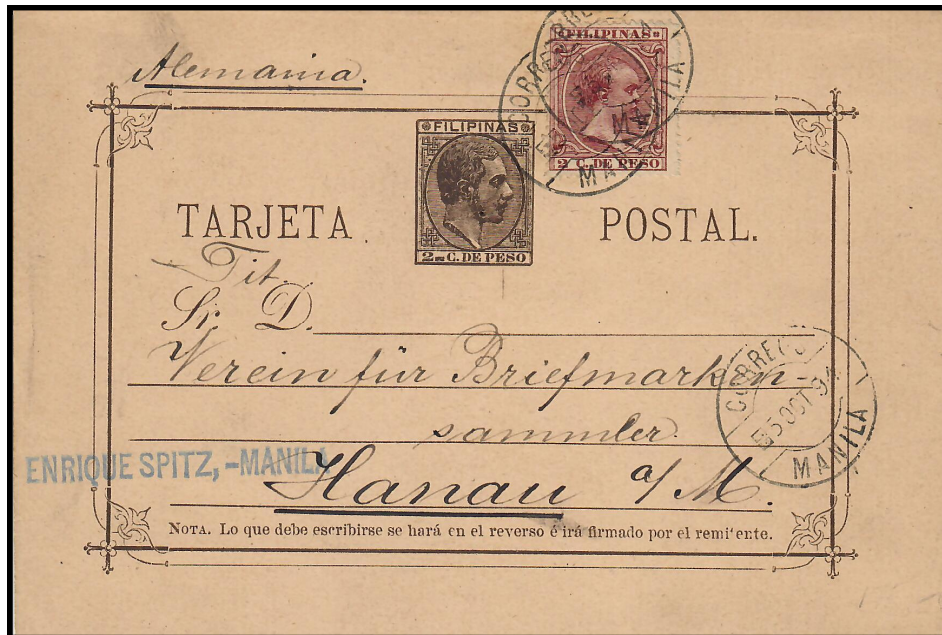 Alemania.
FILIPINAS
2 C. DE PESO
CORREOS
MANILA
FILIPINAS
2 ms C. DE PESO
TARJETA POSTAL.
Tit.
Sr. D.
Verein für Briefmarken-
sammler
CORREOS
5 OCT 94
MANILA
ENRIQUE SPITZ,-MANILA
Hanau a/M.
NOTA. Lo que debe escribirse se hará en el reverso é irá firmado por el remitente.